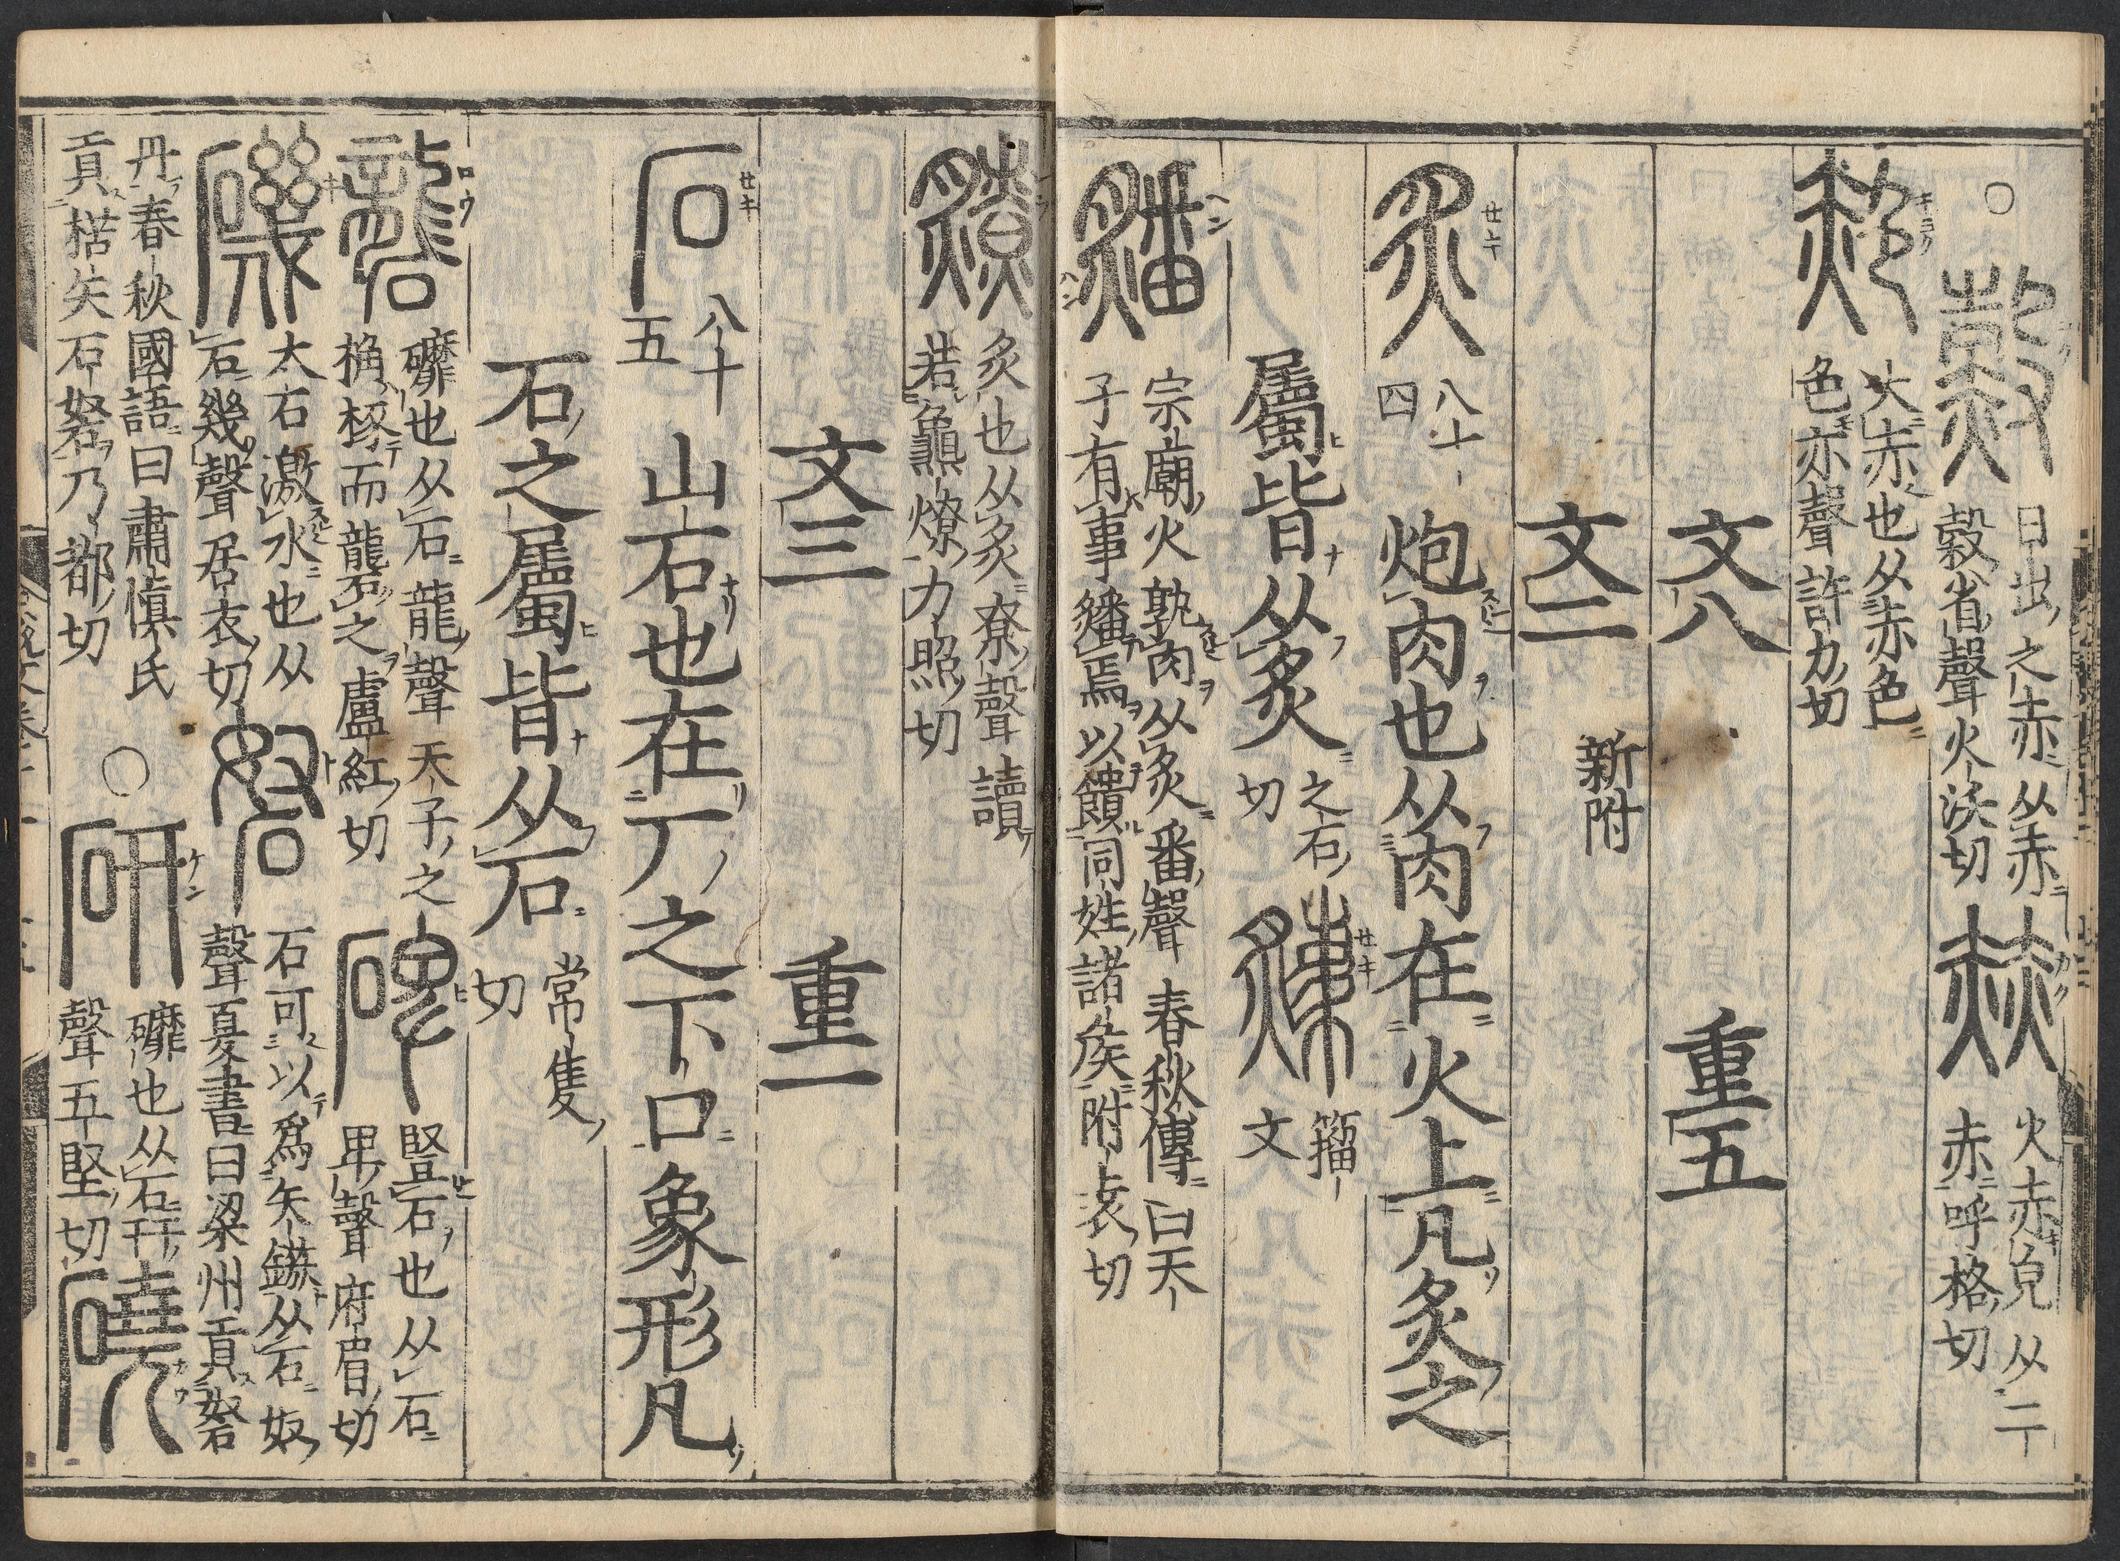 ○
日出之赤从赤
榖省聲火沃切
赫
火赤皃从二
赤呼格切
大赤也从赤色
色亦聲許力切
文八
重五
文二
新附
炙
八十
四
炮肉也从肉在火上凡炙之
屬皆从炙
之石
切
籀
文
宗廟火孰肉从炙番聲春秋傳曰天
子有事繙焉以饋同姓諸矦附袁切
炙也从炙尞聲讀
若龜燎力照切
文三
重一
石
八十
五
山石也在厂之下口象形凡
石之屬皆从石
常隻
切
礲
䃺也从石龍聲天子之
桷椓而礱之盧紅切
碑
豎石也从石
卑聲府眉切
磯
大石激水也从
石幾聲居衣切
砮
石可以爲矢鏃从石奴
聲夏書曰梁州貢砮
丹春秋國語曰肅愼氏
貢楛矢石砮乃都切
○
研
䃺也从石幵
聲五堅切
磽